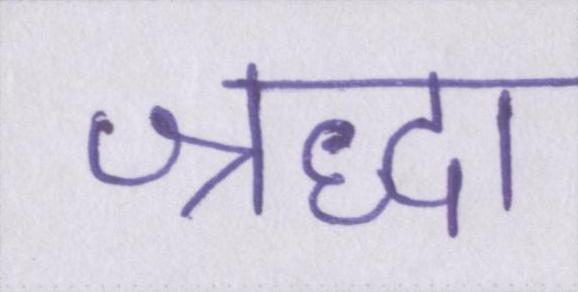 श्रद्धा